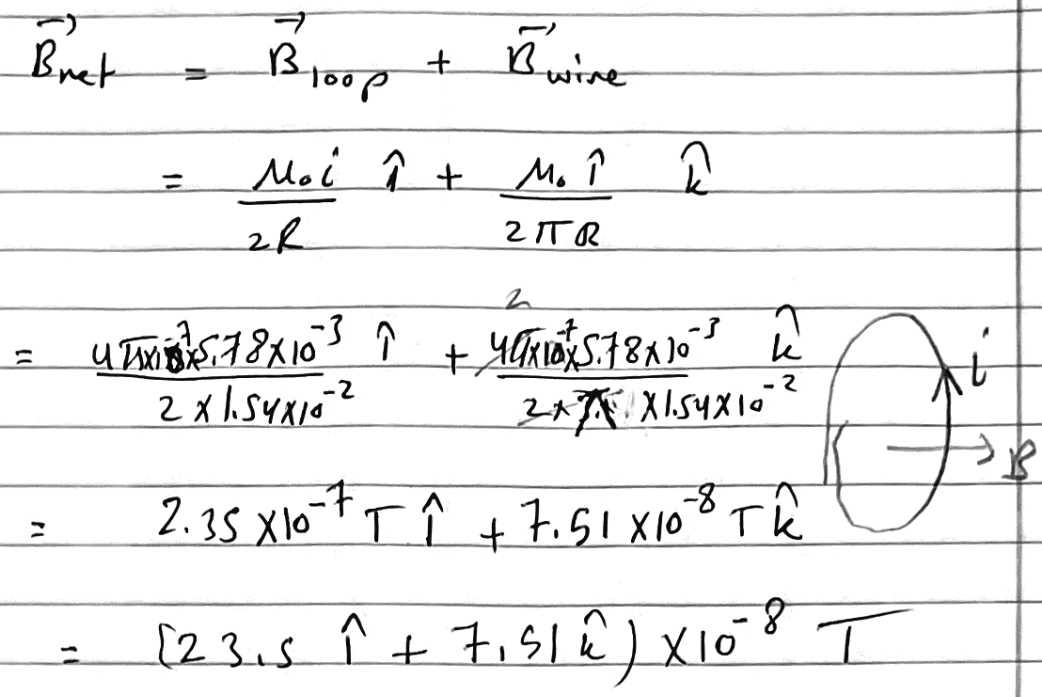 B⃗net = B⃗loop + B⃗wire
= μ₀i/2R î + μ₀î/2πR k̂
= 4π×10⁻⁷×5.78×10⁻³/2×1.54×10⁻² î + 4π×10⁻⁷×5.78×10⁻³/2×π×1.54×10⁻² k̂
2
i
B
= 2.35×10⁻⁷ T î + 7.51×10⁻⁸ T k̂
= (23.5 î + 7.51 k̂)×10⁻⁸ T